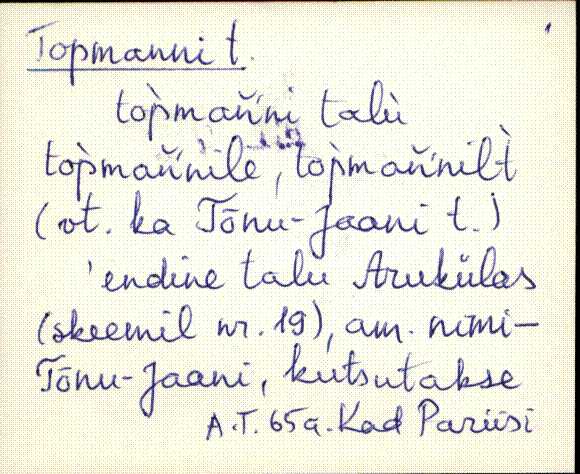 Topmanni t.
tò͔pmaňni talù
tò͔pmaňnile, tò͔pmaňnilt̀
(vt. ka Tõnu-Jaani t.)
'endine talu Arukülas
(skeemil nr. 19), am. nimi-
Tõnu-Jaani, kutsutakse
A.T. 65a. Kad Pariisi